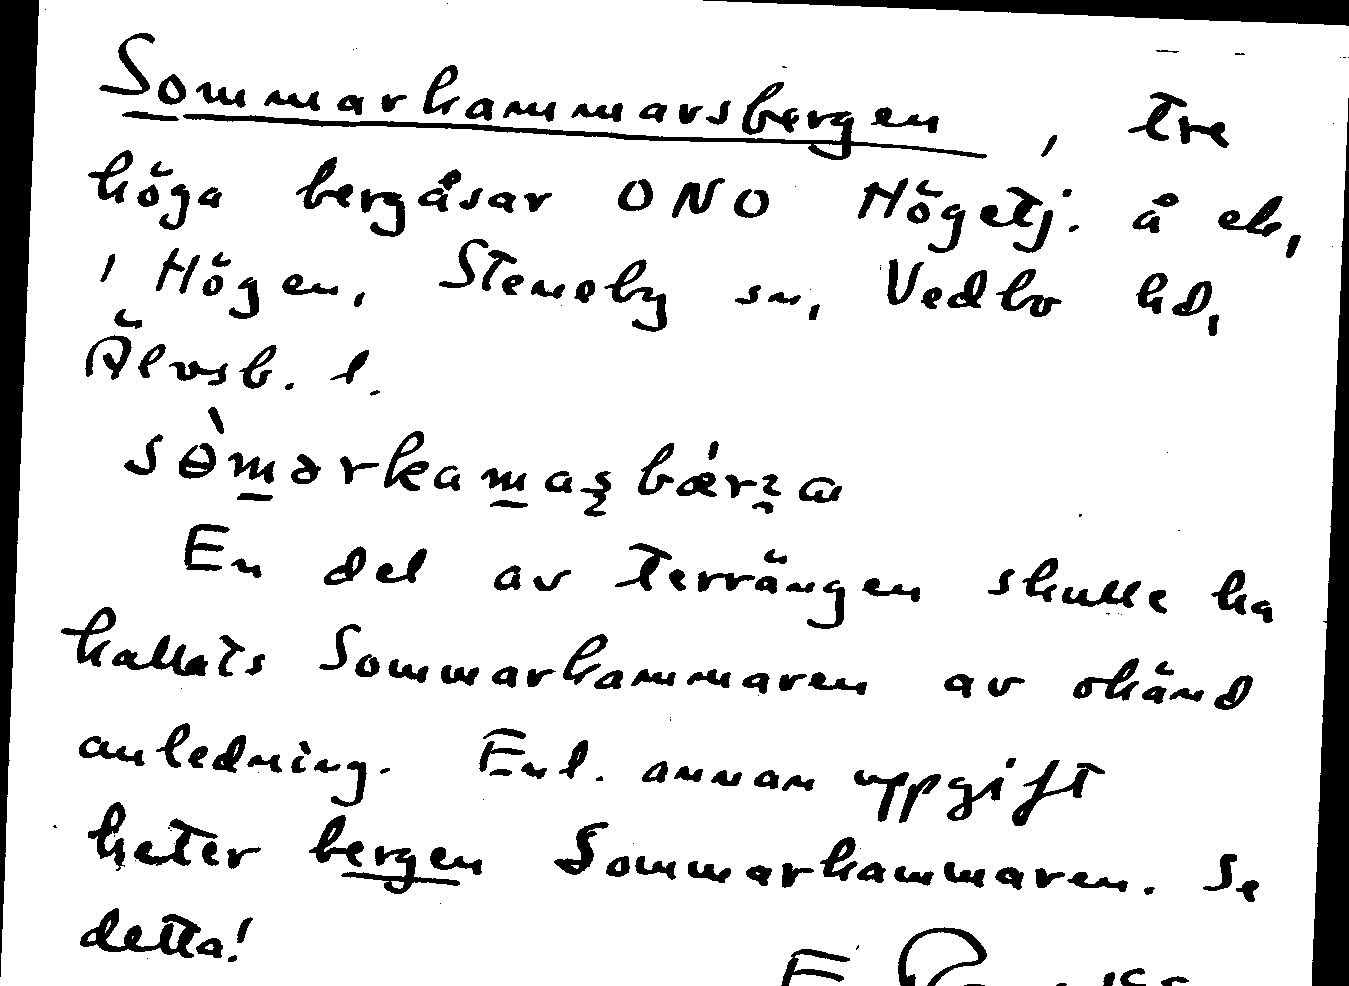 Sommarkammarsbergen, tre
höga bergåsar ONO Högetj. å ek,
i Högen, Steneby sn, Vedbo hd,
Älvsb. l.
sòmarkamasbǽrza
En del av terrängen skulle ha
kallats Sommarkammaren av okänd
anledning. Enl. annan uppgift
heter bergen Sommarkammaren. Se
detta!